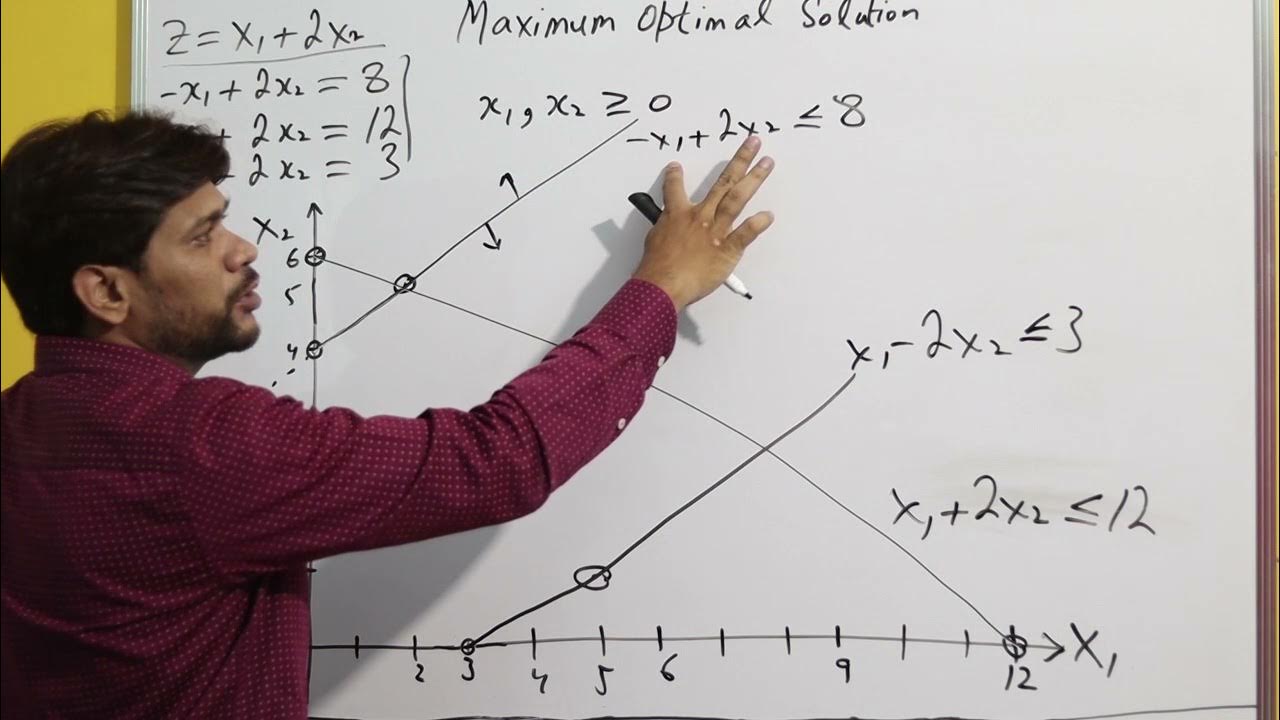 Maximum Optimal Solution
Z = x₁ + 2x₂
-x₁ + 2x₂ = 8
+ 2x₂ = 12
2x₂ = 3
x₁, x₂ ≥ 0
-x₁ + 2x₂ ≤ 8
X₂
6
5
4
x₁ - 2x₂ ≤ 3
x₁ + 2x₂ ≤ 12
2 3 4 5 6 9 12 X₁